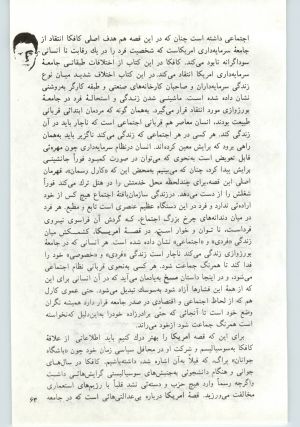 اجتماعی داشته است چنان که در این قصه هم هدف اصلی کافکا انتقاد از
جامعهٔ سرمایه‌داری امریکاست که شخصیت فرد را در یک رقابت نا انسانی
سوداگرانه نابود می‌کند. کافکا در این کتاب از اختلافات طبقاتی جامعهٔ
سرمایه‌داری امریکا انتقاد می‌کند. در این کتاب اختلاف شدید میان نوع
زندگی سرمایه‌داران و صاحبان کارخانه‌های صنعتی و طبقه کارگر به‌روشنی
نشان داده شده است. ماشینی شدن زندگی و استحالهٔ فرد در جامعهٔ
بورژوازی مورد انتقاد قرار می‌گیرد. به‌همان گونه که مردمان ابتدائی قربانی
طبیعت بودند، انسان معاصر هم قربانی اجتماعی است که ناچار باید در آن
زندگی کند. هر کسی در هر اجتماعی که زندگی می‌کند ناگزیر باید به‌همان
راهی برود که برایش معین کرده‌اند. انسان در نظام سرمایه‌داری چون مهره‌ئی
قابل تعویض است به‌نحوی که می‌توان در صورت کمبود فوراً جانشینی
برایش پیدا کرد. چنان که می‌بینیم به‌محض این که «کارل رسمان»، قهرمان
اصلی این قصه، برای چندلحظه محل خدمتش را در هتل ترک می‌کند فوراً
شغلش را از دست می‌دهد. درزندگی سازمان‌یافتهٔ اجتماع هیچ کس از خود
اراده‌ئی ندارد و فرد در این دستگاه عظیم عنصری است تابع و مطیع. هر فرد
در میان دندانه‌های چرخ بزرگ اجتماع، که گردش آن فراسوی نیروی
فرداست، نا توان و خوار است. در قصهٔ آمریکا، کشمکش میان
زندگی «فردی» و «اجتماعی» نشان داده شده است. هر انسانی که در جامعهٔ
بورژوازی زندگی می‌کند ناچار است زندگی «فردی» و «خصوصی» خود را
فدا کند تا همرنگ جماعت شود. هر کسی به‌نحوی قربانی نظام اجتماعی
می‌شود، و در اینجا داستان مسخ به‌یادمان می‌آید که در آن انسانی برای این
که از همهٔ این فشارها آزاد شود به‌سوسک تبدیل می‌شود. حتی عموی کارل
هم که از لحاظ اجتماعی و اقتصادی در صدر جامعه قرار دارد همیشه نگران
وضع خود است تا آنجائی که حتی برادرزاده خودرا به‌این‌دلیل که‌نخواسته
است همرنگ جماعت شود ازخود می‌راند.
برای این که قصه آمریکا را بهتر درک کنیم باید اطلاعاتی از علاقهٔ
کافکا به‌سوسیالیسم و شرکت او در محافل سیاسی زمان خود چون «باشگاه
جوانان» پراگ، که قبلا به‌آن اشاره شد، داشته‌باشیم. کافکا در سال‌های
جوانی و هنگام دانشجوئی به‌جنبش‌های سوسیالیستی گرایش‌هائی داشت
واگرچه رسماً وارد هیچ حزب و دسته‌ئی نشد قلباً با رژیم‌های استعماری
مخالفت می‌ورزید. قصهٔ آمریکا درباره بی‌عدالتی‌هائی است که در جامعه
۶۳